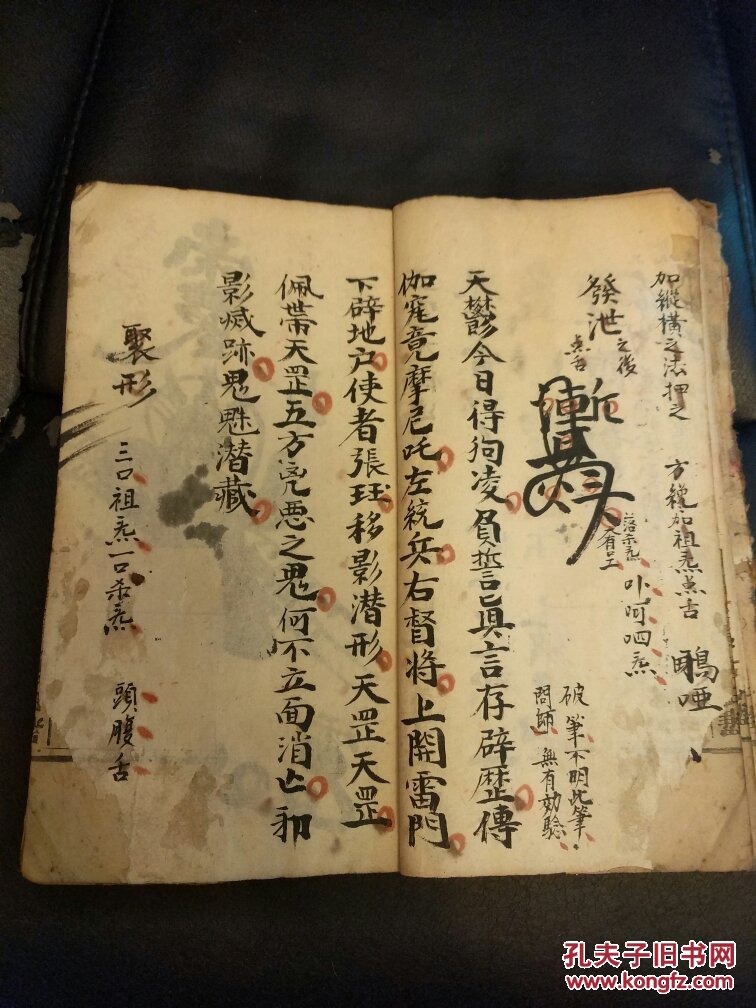 加縱橫之法押之
方繞加祖炁点舌
鴉啞
發泄之後点舌
落杀炁
卟呵呬炁
破筆不明此筆
問師無有効驗
天欝今日得狗凌負誓真言存辟歷傳
伽寃竟摩尼吒左統兵右督将上開雷門
下辟地户使者張珏移影潛形天罡天罡
佩帶天罡五方兇惡之鬼何不立面消亡
影灭跡鬼魅潛藏
聚形
三口祖炁一口杀炁
頭腹舌
孔夫子旧书网
www.kongfz.com